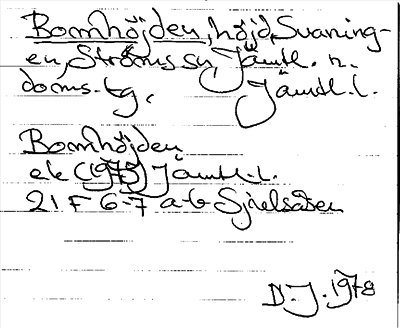 Bomhöjden, höjd, Svaning-
en, Ströms sn, Jämtl. n.
doms.-sg, Jämtl. l.
Bomhöjden
ek (1975) Jämtl. l.
21 F 6-7 a-b Sjulsåsen
D. J. 1978